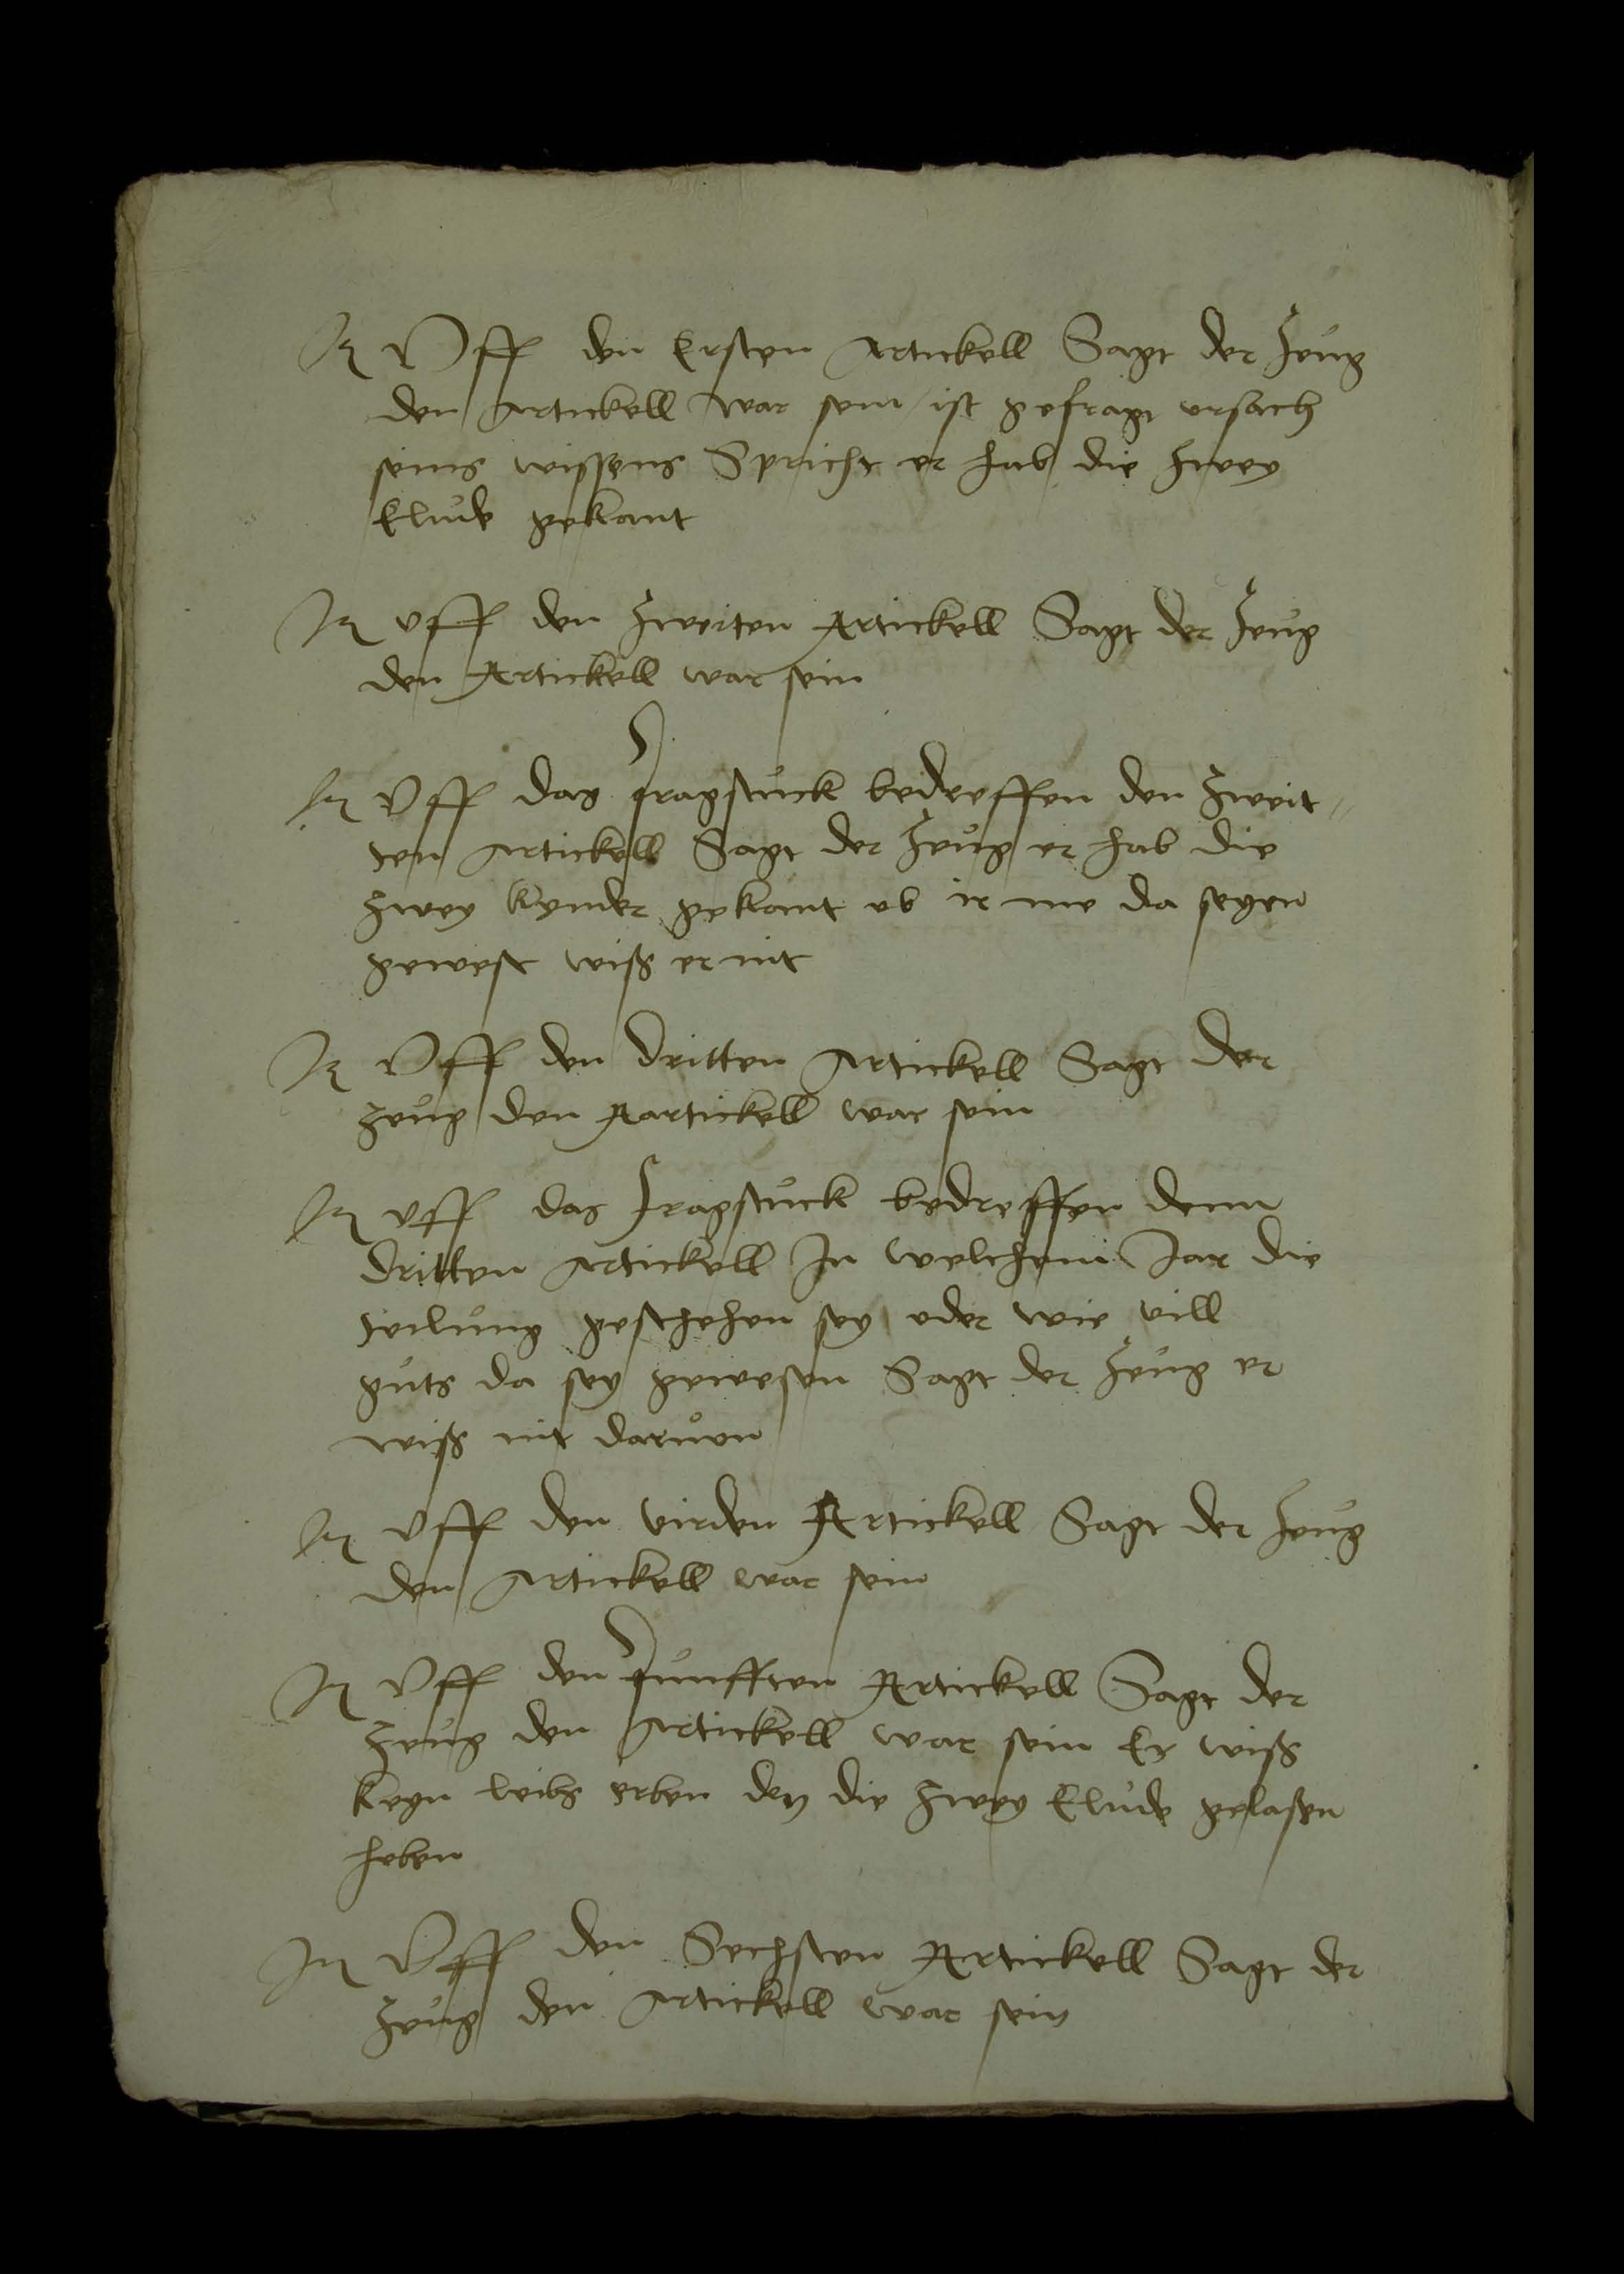 Jt Uff den Ersten Artickell Sagt der Zeug
den Artickell war sein / ist gefragt ursach
seins wissens Spricht er hab die zwey
Elude gekant
Jt Uff den Zweiten Artickell Sagt der Zeug
den Artickell war sein
Jt Uff das Fragstuck bedreffen den Zweit„
ten Artickell Sagt der Zeug er hab die
zwey kynder gekant ob ir me da seyen
gewest wiß er nit
Jt Uff den dritten Artickell Sagt der
Zeug den Aartickell war sein
Jt Uff das Fragstuck bedreffen denn
dritten Artickell Jn welchem Jar die
teilung geschehen sey oder wie vill
guts da sey gewesen Sagt der Zeug er
wiß nit daruon
Jt Uff den virden Artickell Sagt der Zeug
den Artickell war sein
Jt Uff den Funfften Artickell Sagt der
Zeug den Artickell war sein Er wiß
keyn leibs erben den die zwey Elude gelaßen
heben
Jt Uff den Sechsten Artickell Sagt der
Zeug den Artickell war sein